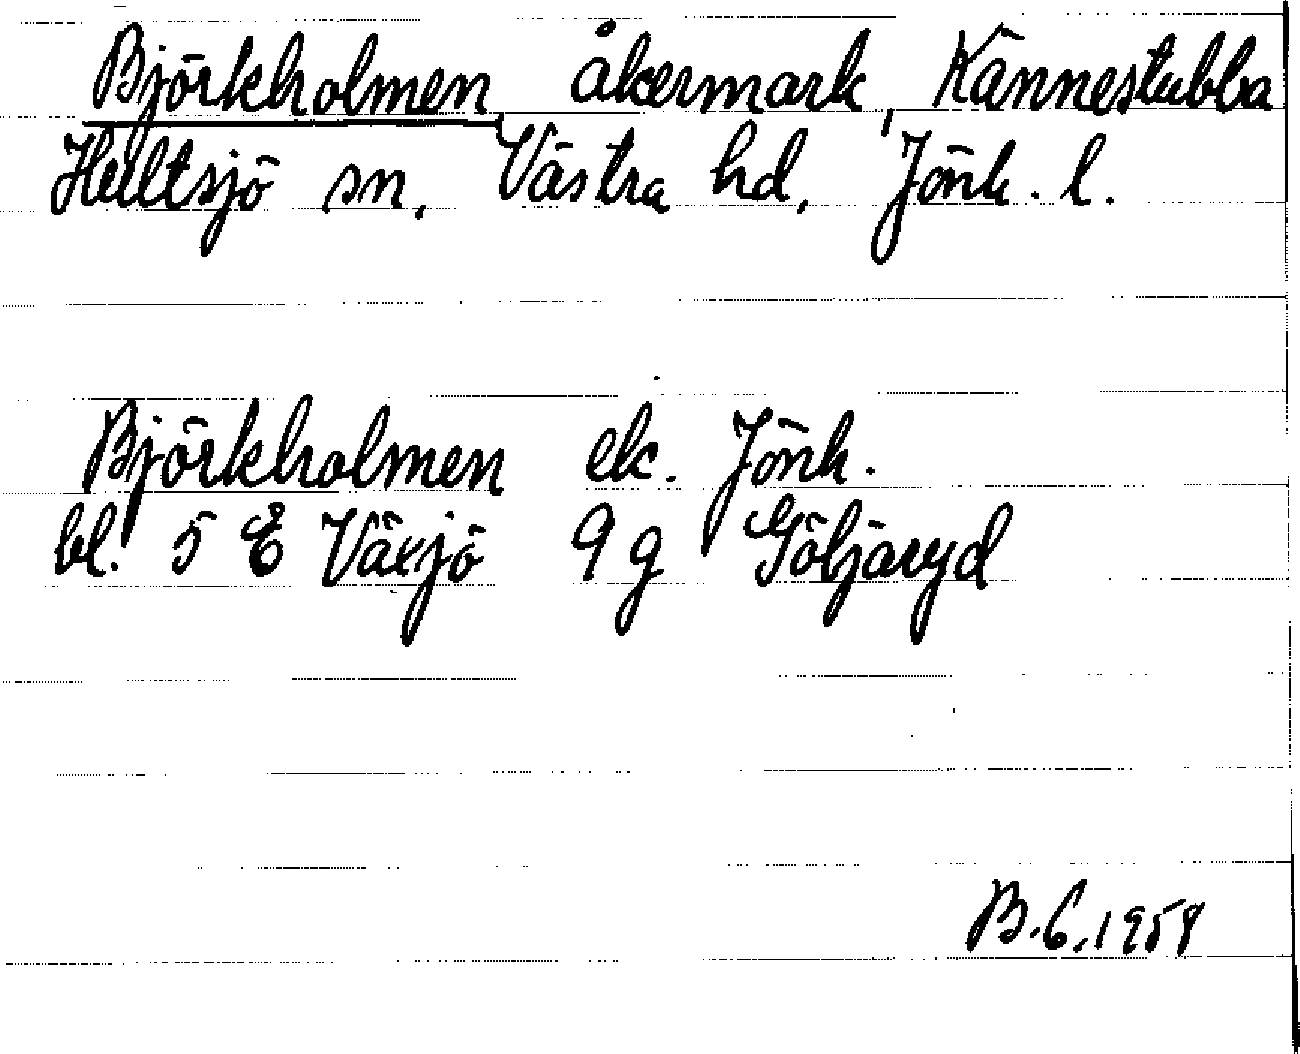 Björkholmen åkermark, Kännestubba
Hultsjö sn, Västra hd, Jönk. l.
Björkholmen ek. Jönk.
bl. 5 E Växjö 9 g Göljaryd
B. C. 1958